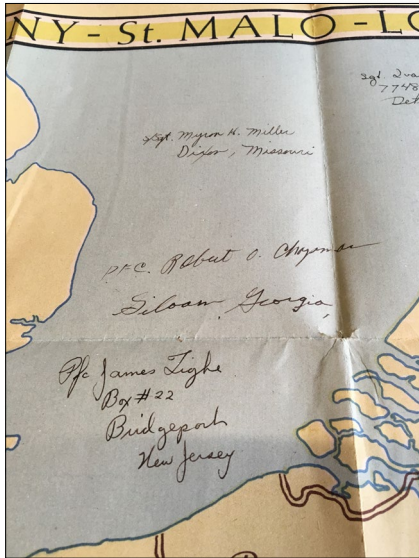 NY - St. MALO - LO
Sgt.
7748
Det
Sgt. Myron H. Miller
Dixon, Missouri
PFC. Robert O. Chapman
Siloam, Georgia,
Pfc James Tighe
Box #22
Bridgeport
New Jersey